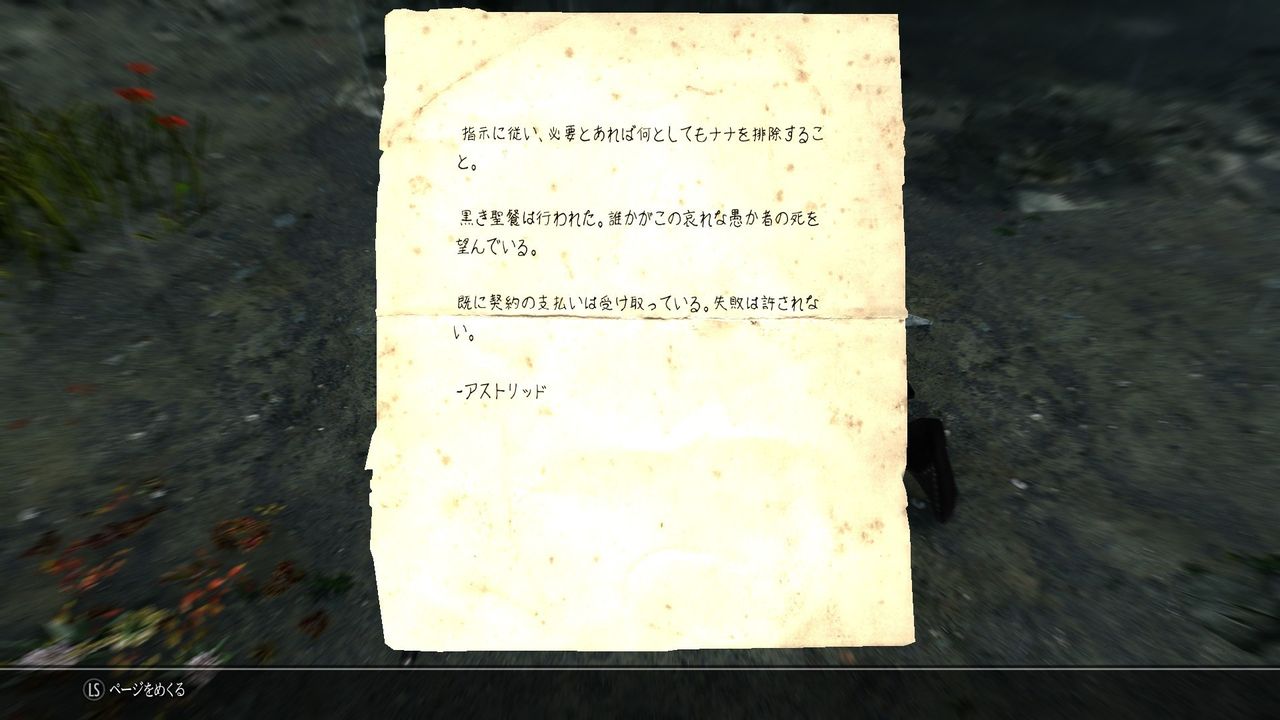 指示に従い、必要とあれば何としてもナナを排除するこ
と。
黒き聖餐は行われた。誰かがこの哀れな愚か者の死を
望んでいる。
既に契約の支払いは受け取っている。失敗は許されな
い。
-アストリッド
LS ページをめくる